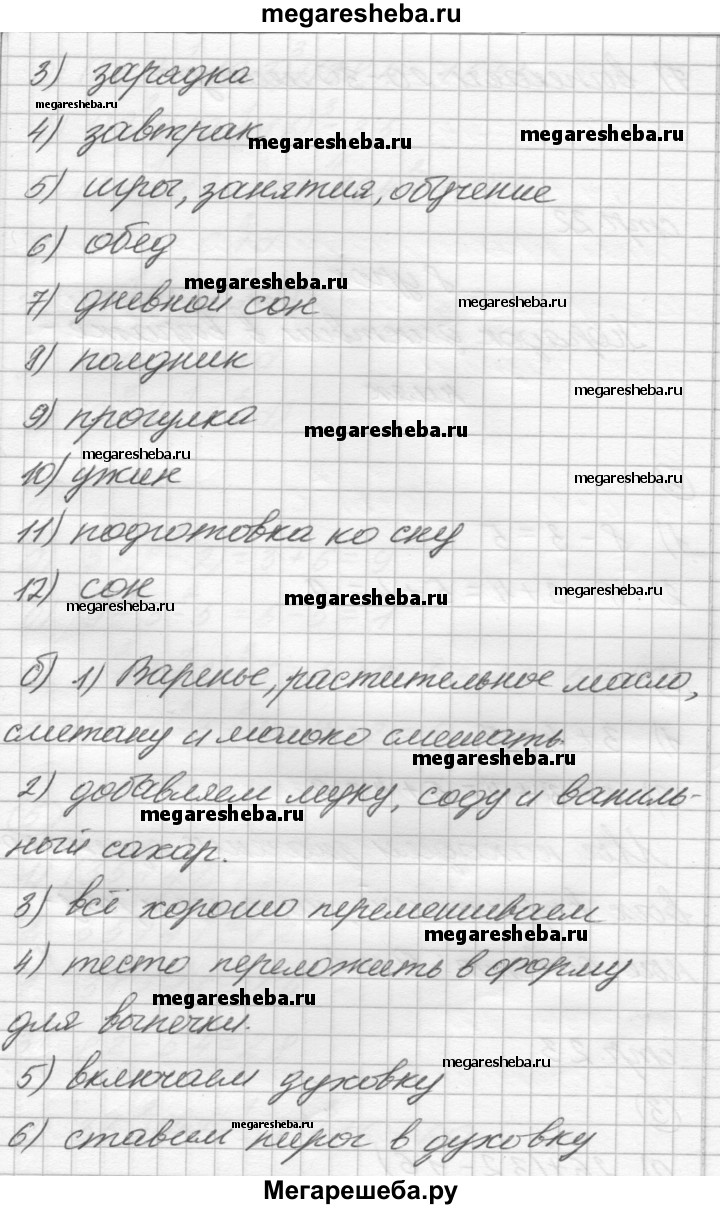 megaresheba.ru
3) зарядка
megaresheba.ru
4) завтрак
megaresheba.ru
megaresheba.ru
5) игры, занятия, обучение
6) обед
megaresheba.ru
7) дневной сон
megaresheba.ru
8) полдник
megaresheba.ru
9) прогулка
megaresheba.ru
megaresheba.ru
10) ужин
megaresheba.ru
11) подготовка ко сну
12) сон
megaresheba.ru
megaresheba.ru
megaresheba.ru
б) 1) Варенье, растительное масло,
сметану и молоко смешать
megaresheba.ru
2) добавляем муку, соду и ваниль-
megaresheba.ru
ный сахар.
3) всё хорошо перемешиваем
megaresheba.ru
4) тесто переложить в форму
megaresheba.ru
для выпечки.
megaresheba.ru
5) включаем духовку
megaresheba.ru
6) ставим пирог в духовку
Мегарешеба.ру